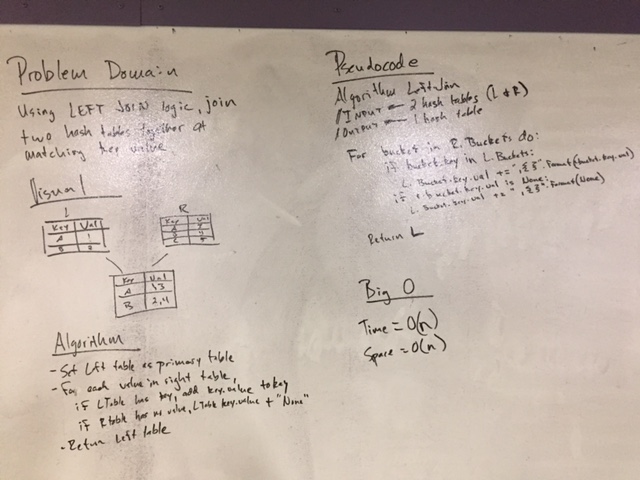 Problem Domain
Using LEFT JOIN logic, join
two hash tables together at
matching key value
Visual
L
Key Val
A 1
B 2
R
Key Val
Key Val
A 1,3
B 2,4
Algorithm
- Set Left table as primary table
- For each value in right table,
if LTable has key, add key.value to key
if Rtable has no value, LTable key.value + "None"
- Return Left table
Pseudocode
Algorithm LeftJoin
// INPUT ← 2 hash tables (L & R)
// Output ← 1 hash table
For bucket in R.Buckets do:
if bucket.key in L.Buckets:
L.Bucket.key.val += ", {}".format(bucket.key.val)
if bucket.key.val is None:
L.bucket.key.val += ", {}".format(None)
Return L
Big O
Time = O(n)
Space = O(n)